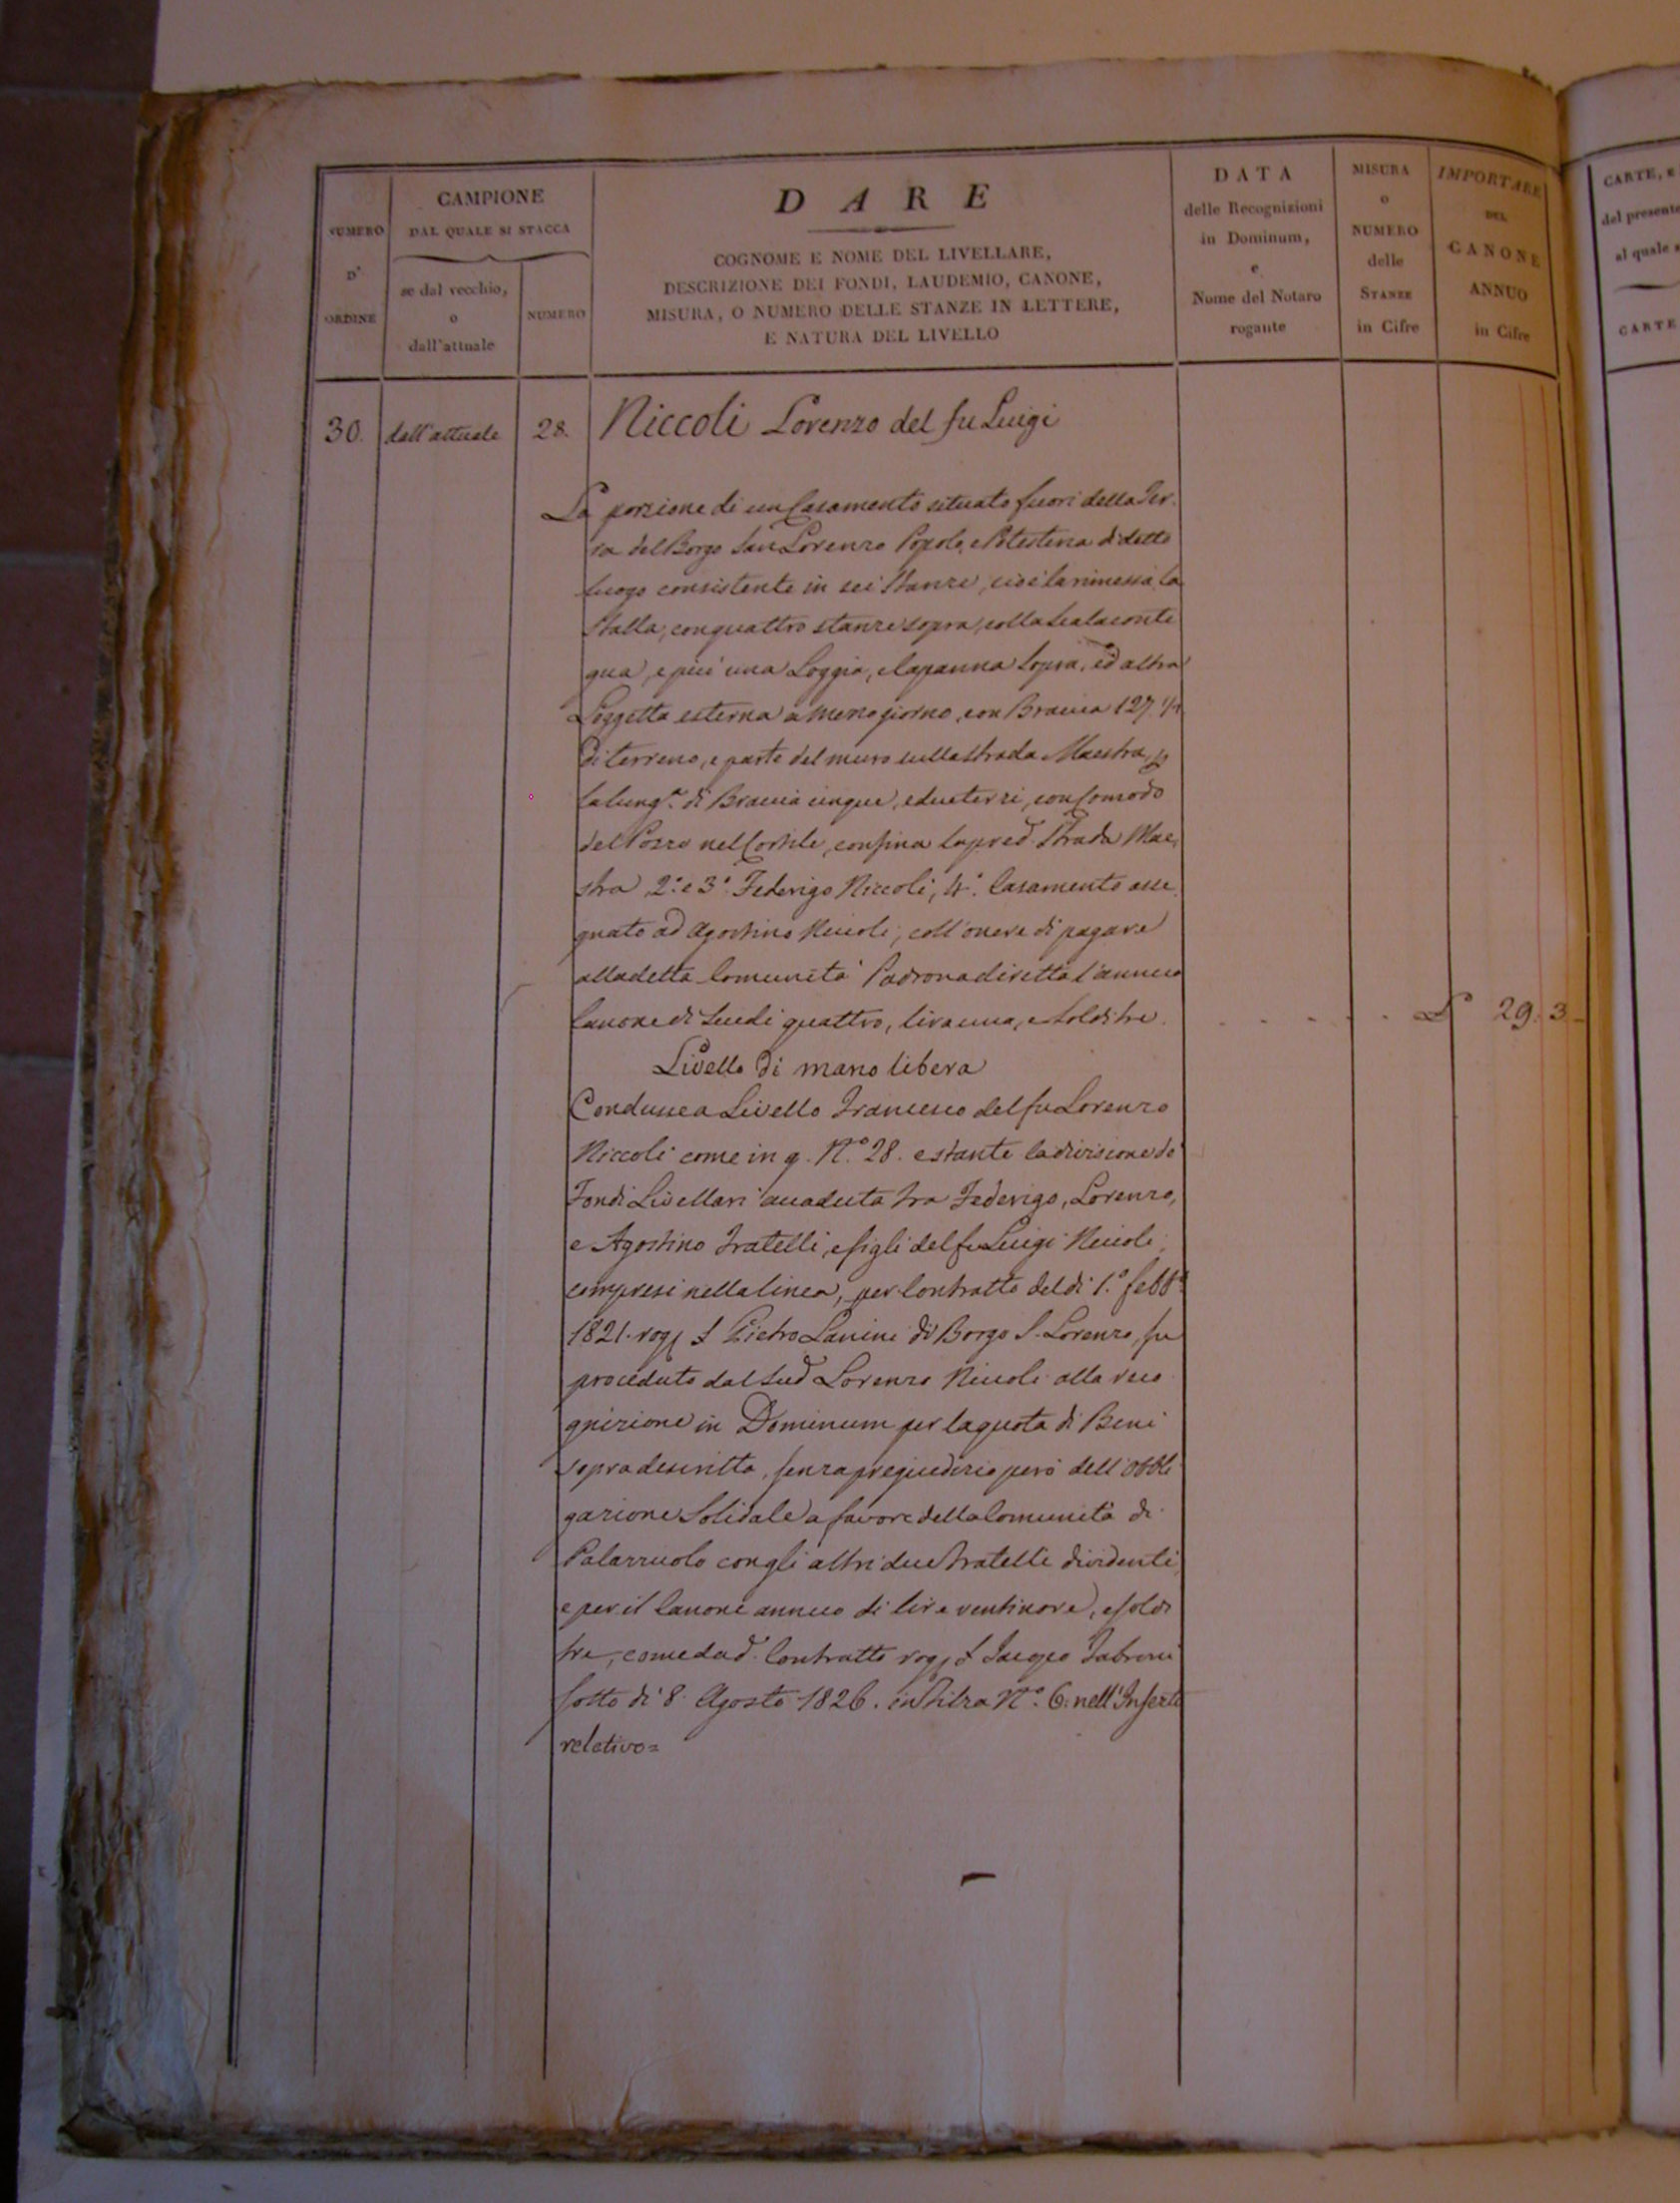 NUMERO
D'
ORDINE
CAMPIONE
DAL QUALE SI STACCA
se dal vecchio,
o
dall'attuale
NUMERO
DARE
COGNOME E NOME DEL LIVELLARE,
DESCRIZIONE DEI FONDI, LAUDEMIO, CANONE,
MISURA, O NUMERO DELLE STANZE IN LETTERE,
E NATURA DEL LIVELLO
DATA
delle Recognizioni
in Dominum,
e
Nome del Notaro
rogante
MISURA
O
NUMERO
delle
STANZE
in Cifre
IMPORTARE
DEL
CANONE
ANNUO
in Cifre
CARTE, E
del presente
al quale s
CARTE
30. dall'attuale 28. Niccoli Lorenzo del fu Luigi
La porzione di un Casamento situato fuori della Ter-
ra del Borgo San Lorenzo Popolo, e Potesteria di detto
luogo consistente in sei Stanze, cioè la rimessa, la
Stalla, con quattro stanze sopra, colla Scala conti
gua, e più una Loggia, e Capanna sopra, ed altra
Loggetta esterna a mezzo giorno, con Braccia 127. 1/4
di terreno, e parte del muro sulla strada Maestra, p
la lungª. di Braccia cinque, e due terzi, con Comodo
del Pozzo nel Cortile, confina la pred. Strada Mae,
stra, 2.° e 3.° Federigo Niccoli, 4.° Casamento asse
gnato ad Agostino Niccoli, coll'onere di pagare
alla detta Comunità Padrona diretta l'annuo
Canone di Scudi quattro, lira una, e Soldi tre. . . . . . £ 29. 3 -
Livello di mano libera
Condusse a Livello Francesco del fu Lorenzo
Niccoli come in q. N.° 28. e stante la divisione de'
Fondi Livellari accaduta tra Federigo, Lorenzo,
e Agostino Fratelli, e figli del fu Luigi Niccoli
compresi nella linea, per Contratto del dì 1.° febb.º
1821. rog. S Pietro Lanini di Borgo S. Lorenzo, fu
proceduto dal Sud. Lorenzo Niccoli alla reco
gnizione in Dominum per la quota di Beni
sopra descritta, senza pregiudizio però dell'Obbli
gazione Solidale a favore della Comunità di
Palazzuolo con gli altri due Fratelli dividenti,
e per il Canone annuo di lire ventinove, e soldi
tre, come da d. Contratto rog. S Jacopo Fabroni
sotto dì 8. Agosto 1826. in Filza N.° 6: nell'Inserto
relativo=